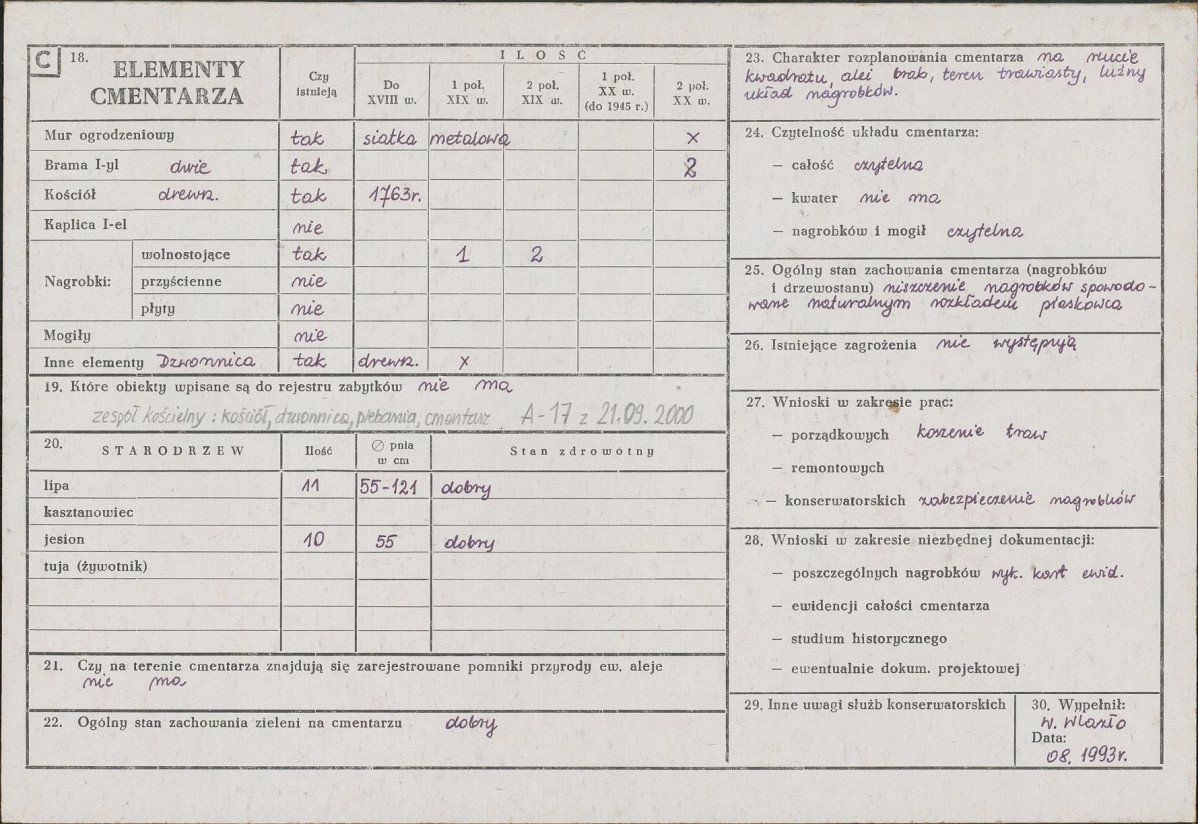 C 18. ELEMENTY CMENTARZA
Czy istnieją
ILOŚĆ
Do XVIII w.
1 poł. XIX w.
2 poł. XIX w.
1 poł. XX w. (do 1945 r.)
2 poł. XX w.
Mur ogrodzeniowy tak siatka metalowa x
Brama I-yl dwie tak 2
Kościół drewn. tak 1763r.
Kaplica I-el nie
Nagrobki: wolnostojące tak 1 2
przyścienne nie
płyty nie
Mogiły nie
Inne elementy Dzwonnica tak drewn. x
19. Które obiekty wpisane są do rejestru zabytków nie ma
zespół kościelny : kościół, dzwonnica, plebania, cmentarz A-17 z 21.09.2000
20. STARODRZEW Ilość ∅ pnia w cm Stan zdrowotny
lipa 11 55-121 dobry
kasztanowiec
jesion 10 55 dobry
tuja (żywotnik)
21. Czy na terenie cmentarza znajdują się zarejestrowane pomniki przyrody ew. aleje
nie ma
22. Ogólny stan zachowania zieleni na cmentarzu dobry
23. Charakter rozplanowania cmentarza na rzucie
kwadratu, alei brak, teren trawiasty, luźny
układ nagrobków.
24. Czytelność układu cmentarza:
— całość czytelna
— kwater nie ma
— nagrobków i mogił czytelna
25. Ogólny stan zachowania cmentarza (nagrobków
i drzewostanu) niszczenie nagrobków spowodo-
wane naturalnym rozkładem piaskowca
26. Istniejące zagrożenia nie występują
27. Wnioski w zakresie prac:
— porządkowych koszenie traw
— remontowych
— konserwatorskich zabezpieczenie nagrobków
28. Wnioski w zakresie niezbędnej dokumentacji:
— poszczególnych nagrobków wyk. kart ewid.
— ewidencji całości cmentarza
— studium historycznego
— ewentualnie dokum. projektowej
29. Inne uwagi służb konserwatorskich
30. Wypełnił:
W. Wlazło
Data:
08. 1993r.